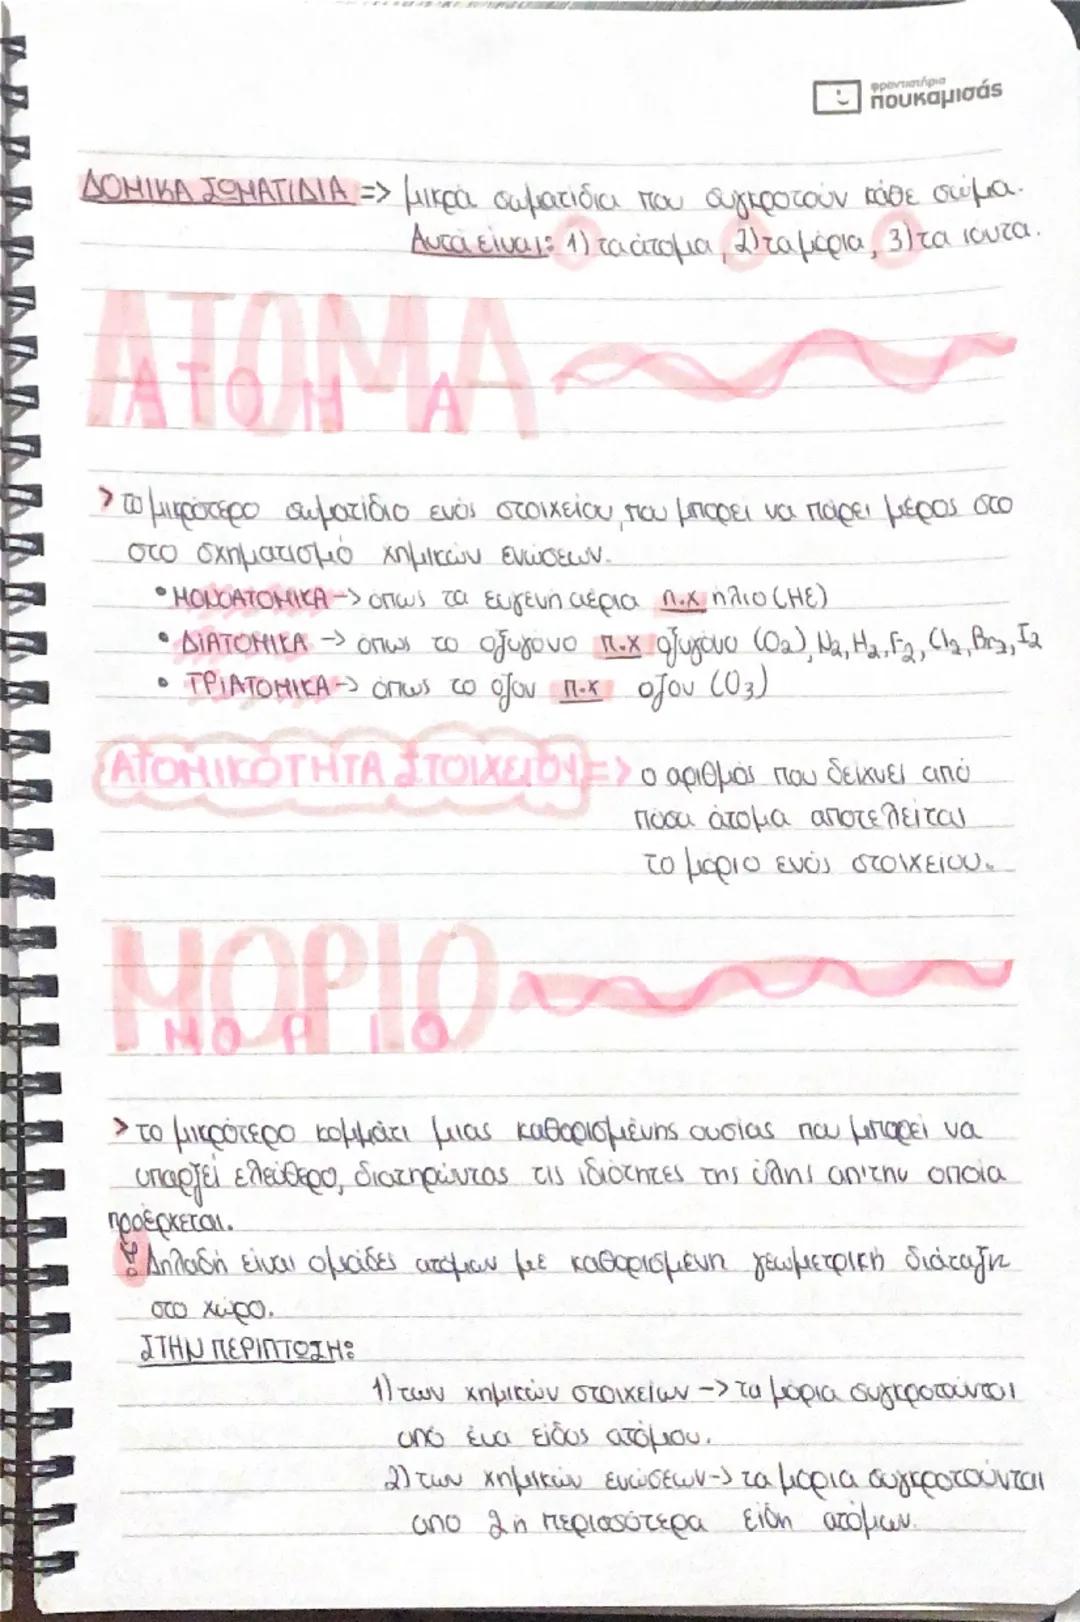 φροντιστήρια
πουκαμισάς
ΔΟΜΙΚΑ ΣΩΜΑΤΙΔΙΑ => μικρά σωματίδια που συγκροτούν κάθε σώμα.
Αυτά είναι: 1) τα άτομα, 2) τα μόρια, 3) τα ιόντα.
ΑΤΟΜΑ
ΑΤΟΜΑ
> το μικρότερο σωματίδιο ενός στοιχείου, που μπορεί να πάρει μέρος στο
στο σχηματισμό χημικών ενώσεων.
• ΜΟΝΟΑΤΟΜΙΚΑ -> όπως τα ευγενή αέρια π.χ ήλιο (HE)
• ΔΙΑΤΟΜΙΚΑ -> όπως το οξυγόνο π.χ οξυγόνο (O2), N2, H2, F2, Cl2, Br2, I2
• ΤΡΙΑΤΟΜΙΚΑ -> όπως το όζον π.χ όζον (O3)
ΑΤΟΜΙΚΟΤΗΤΑ ΣΤΟΙΧΕΙΟΥ => ο αριθμός που δείχνει από
πόσα άτομα αποτελείται
το μόριο ενός στοιχείου.
ΜΟΡΙΟ
ΜΟΡΙΟ
> το μικρότερο κομμάτι μιας καθορισμένης ουσίας που μπορεί να
υπάρξει ελεύθερο, διατηρώντας τις ιδιότητες της ύλης απ'την οποία
προέρχεται.
! Δηλαδή είναι ομάδες ατόμων με καθορισμένη γεωμετρική διάταξη
στο χώρο.
ΣΤΗΝ ΠΕΡΙΠΤΩΣΗ:
1) των χημικών στοιχείων -> τα μόρια συγκροτούνται
από ένα είδος ατόμου.
2) των χημικών ενώσεων -> τα μόρια συγκροτούνται
από 2 ή περισσότερα είδη ατόμων.